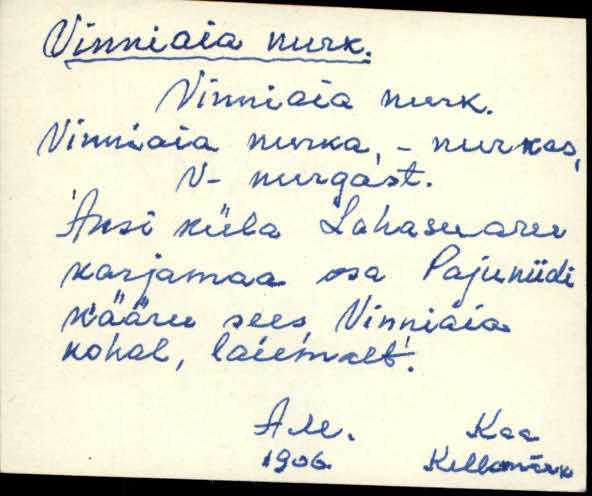 Vinniaia nurk.
Vinniaia nurk.
Vinniaia nurka, - nurkas,
V- nurgast.
Ansi küla Lahasuaru
karjamaa osa Pajuniidi
kääru sees, Vinniaia
kohal, laiemalt.
Kaa
1906. Kellamärk